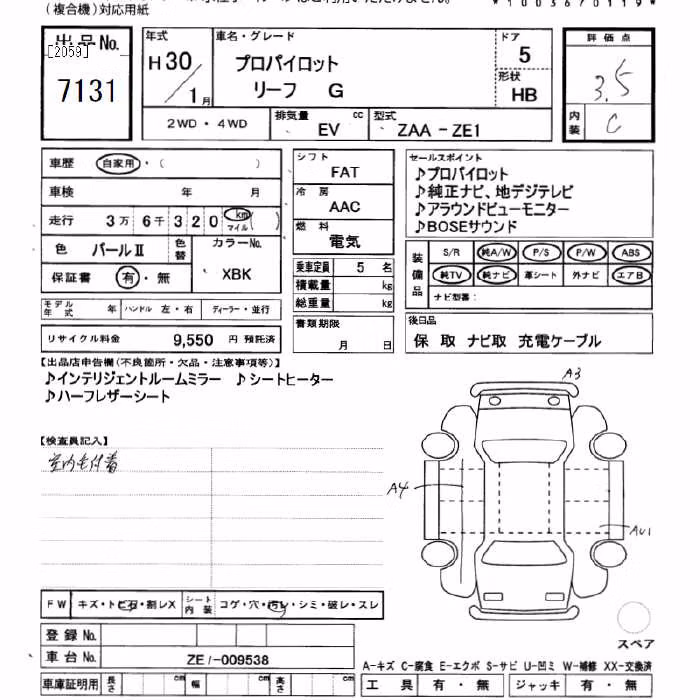 (複合機)対応用紙
*10036701 19*
出品No.
[2059]
7131
年式
H30/1月
車名・グレード
プロパイロット
リーフ G
ドア
5
形状
HB
評価点
3.5
内装
C
2WD・4WD
排気量 cc
EV
型式
ZAA-ZE1
車歴 自家用・( )
車検 年 月
走行 3万6千320 km マイル ( )
色 パールⅡ 色替
カラーNo.
XBK
保証書 有・無
モデル年式 年 ハンドル 左・右 ディーラー・並行
リサイクル料金 9,550 円 預託済
シフト
FAT
冷房
AAC
燃料
電気
乗車定員 5 名
積載量 kg
総重量 kg
書類期限
月 日
セールスポイント
♪プロパイロット
♪純正ナビ、地デジテレビ
♪アラウンドビューモニター
♪BOSEサウンド
装備品
S/R 純A/W P/S P/W ABS
純TV 純ナビ 革シート 外ナビ エアB
ナビ型番:
後日品
保 取 ナビ取 充電ケーブル
【出品店申告欄(不良箇所・欠品・注意事項等)】
♪インテリジェントルームミラー ♪シートヒーター
♪ハーフレザーシート
【検査員記入】
室内毛付着
A3
A4
AU1
スペア
FW キズ・トビ石・割レX シート内装 コゲ・穴・汚レ・シミ・破レ・スレ
登録No.
車台No. ZE1-009538
車庫証明用 長さ cm 幅 cm 高さ cm
A-キズ C-腐食 E-エクボ S-サビ U-凹ミ W-補修 XX-交換済
工具 有・無 ジャッキ 有・無